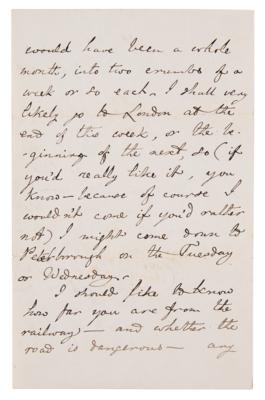 would have been a whole
month, into two crumbs of a
week or so each. I shall very
likely go to London at the
end of this week, or the be-
-ginning of the next, so (if
you'd really like it, you
know — because of course I
wouldn't come if you'd rather
not) I might come down to
Peterborough on the Tuesday
or Wednesday.
I should like to know
how far you are from the
railway — and whether the
road is dangerous — any